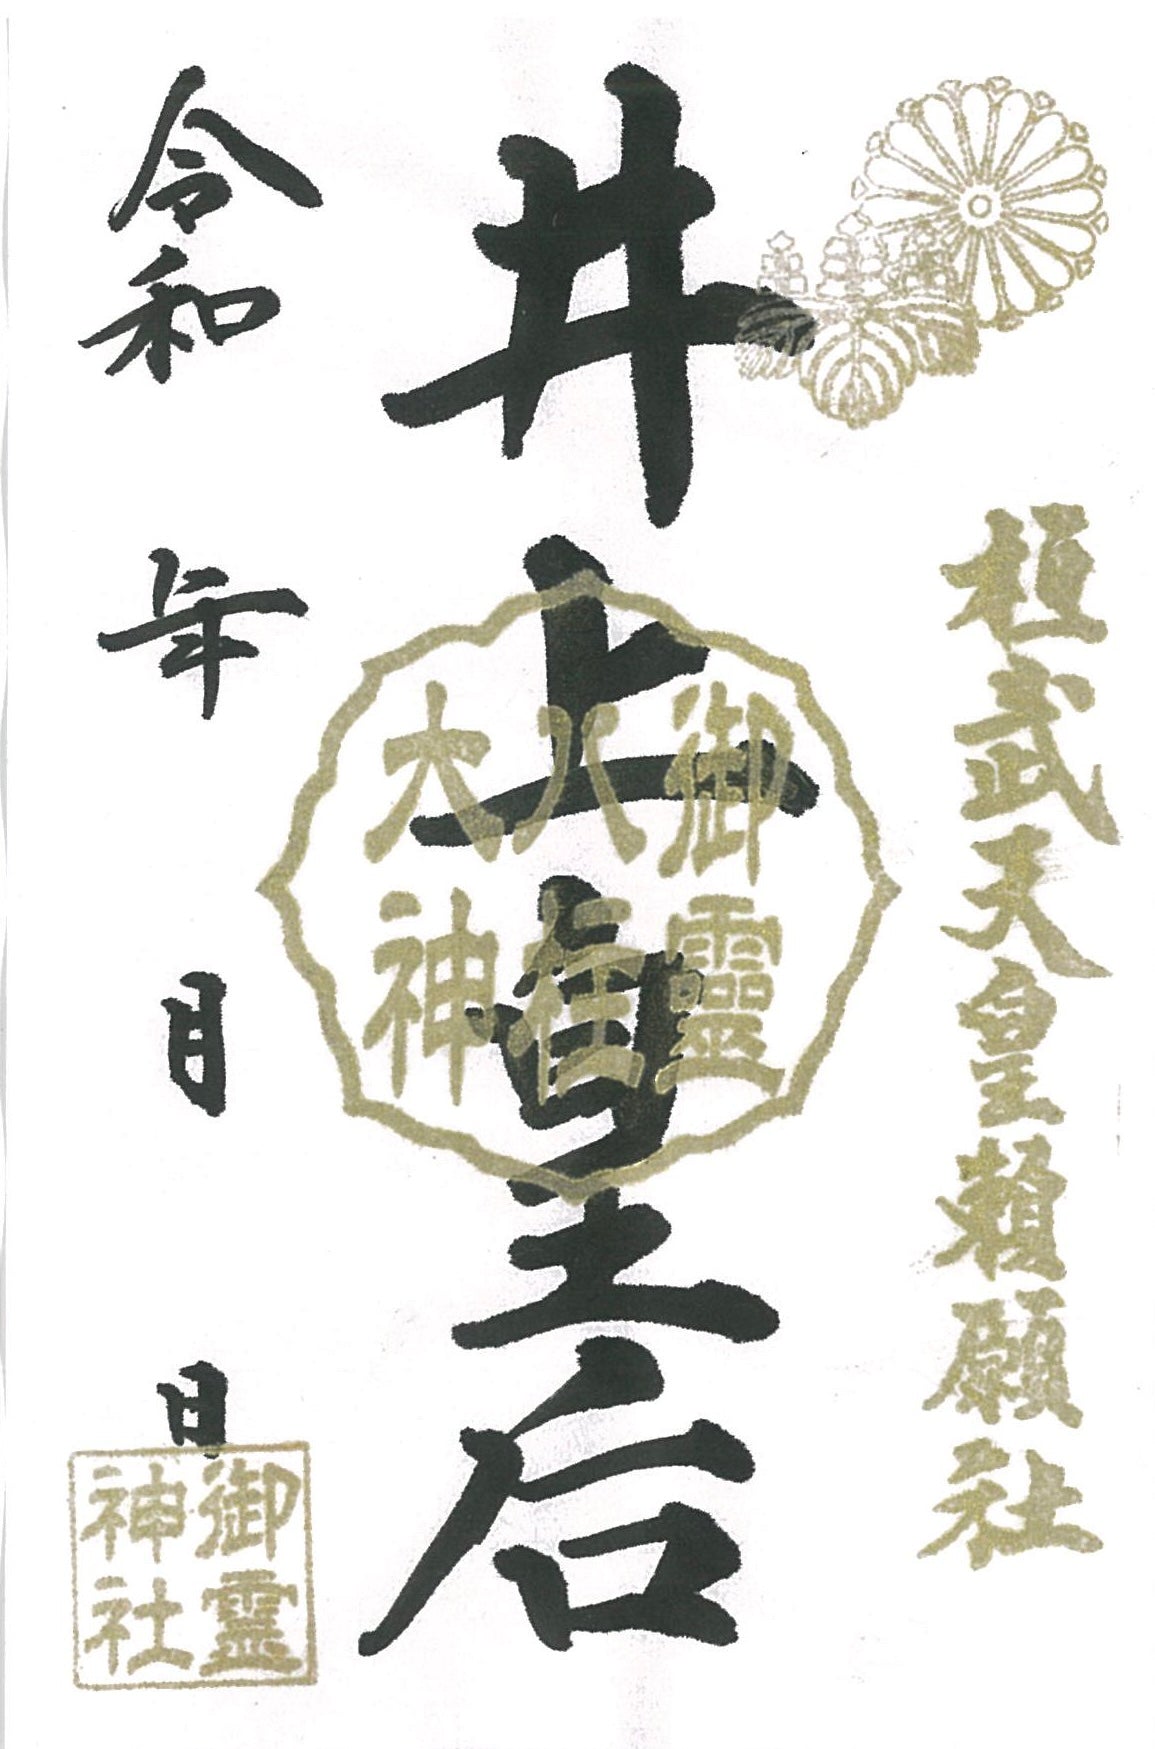 桓武天皇賴願社
井上皇后
御靈
八柱
大神
令和 年 月 日
御霊
神社